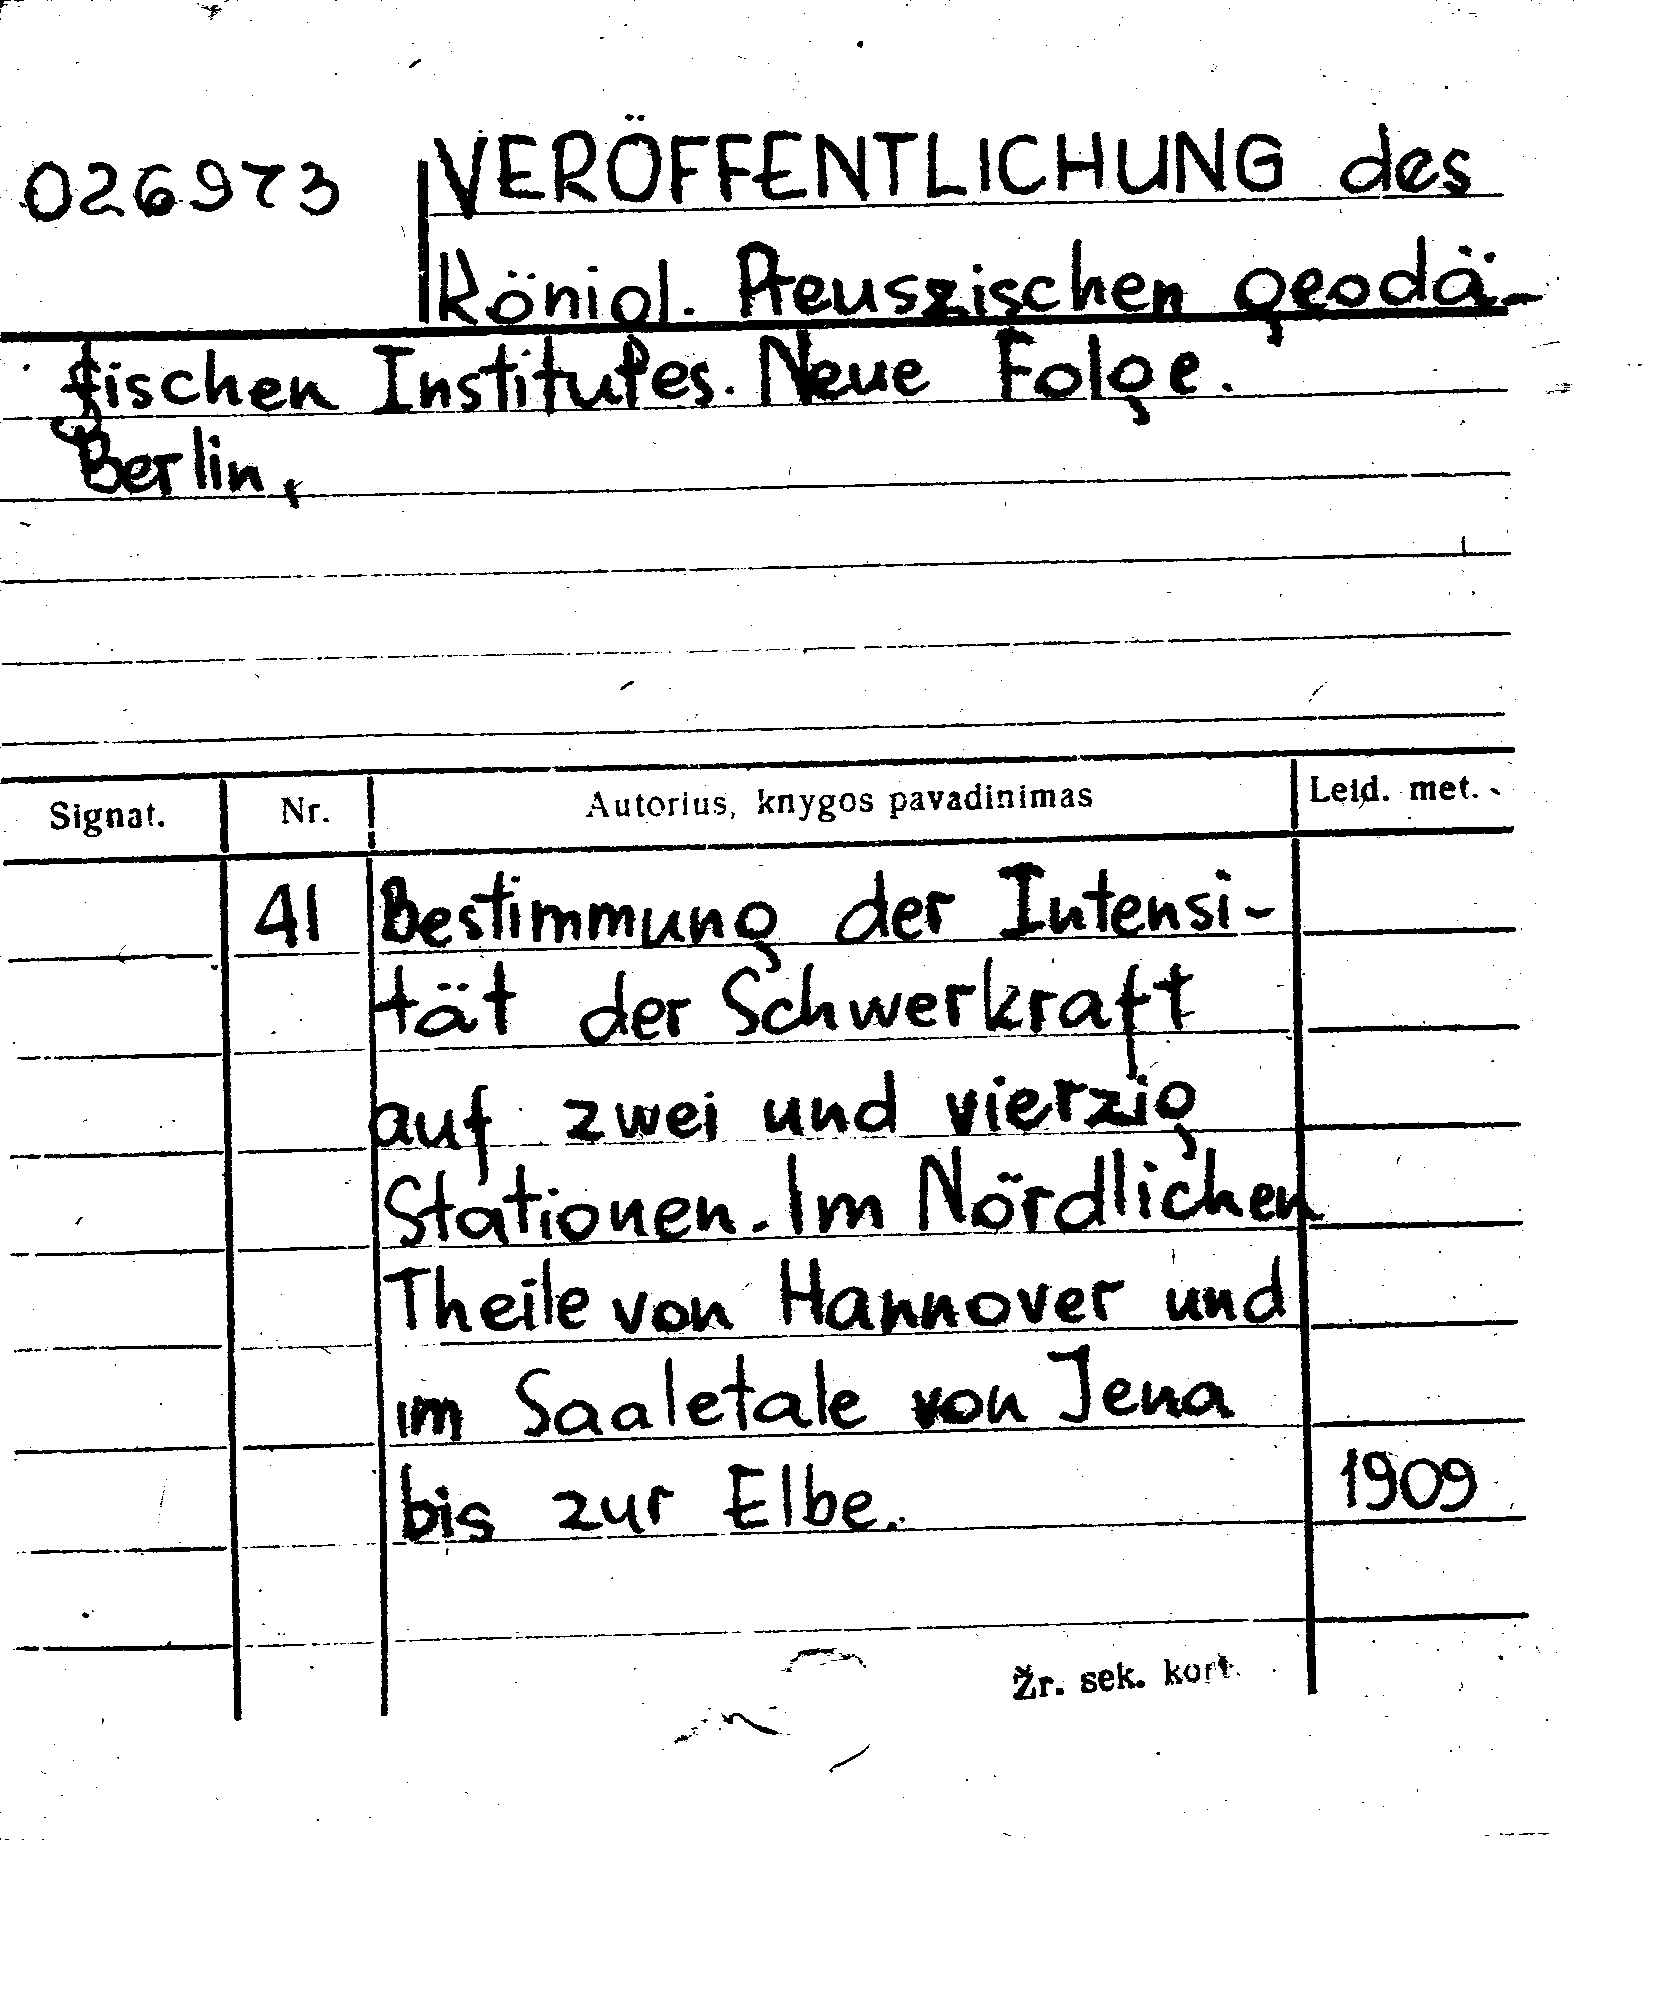 026973 VERÖFFENTLICHUNG des
Königl. Preuszischen geodä-
tischen Institutes. Neue Folge.
Berlin,
Signat. Nr. Autorius, knygos pavadinimas Leid. met.
41 Bestimmung der Intensi-
tät der Schwerkraft
auf zwei und vierzig
Stationen. Im Nördlichen
Theile von Hannover und
im Saaletale von Jena
bis zur Elbe. 1909
Žr. sek. kort.